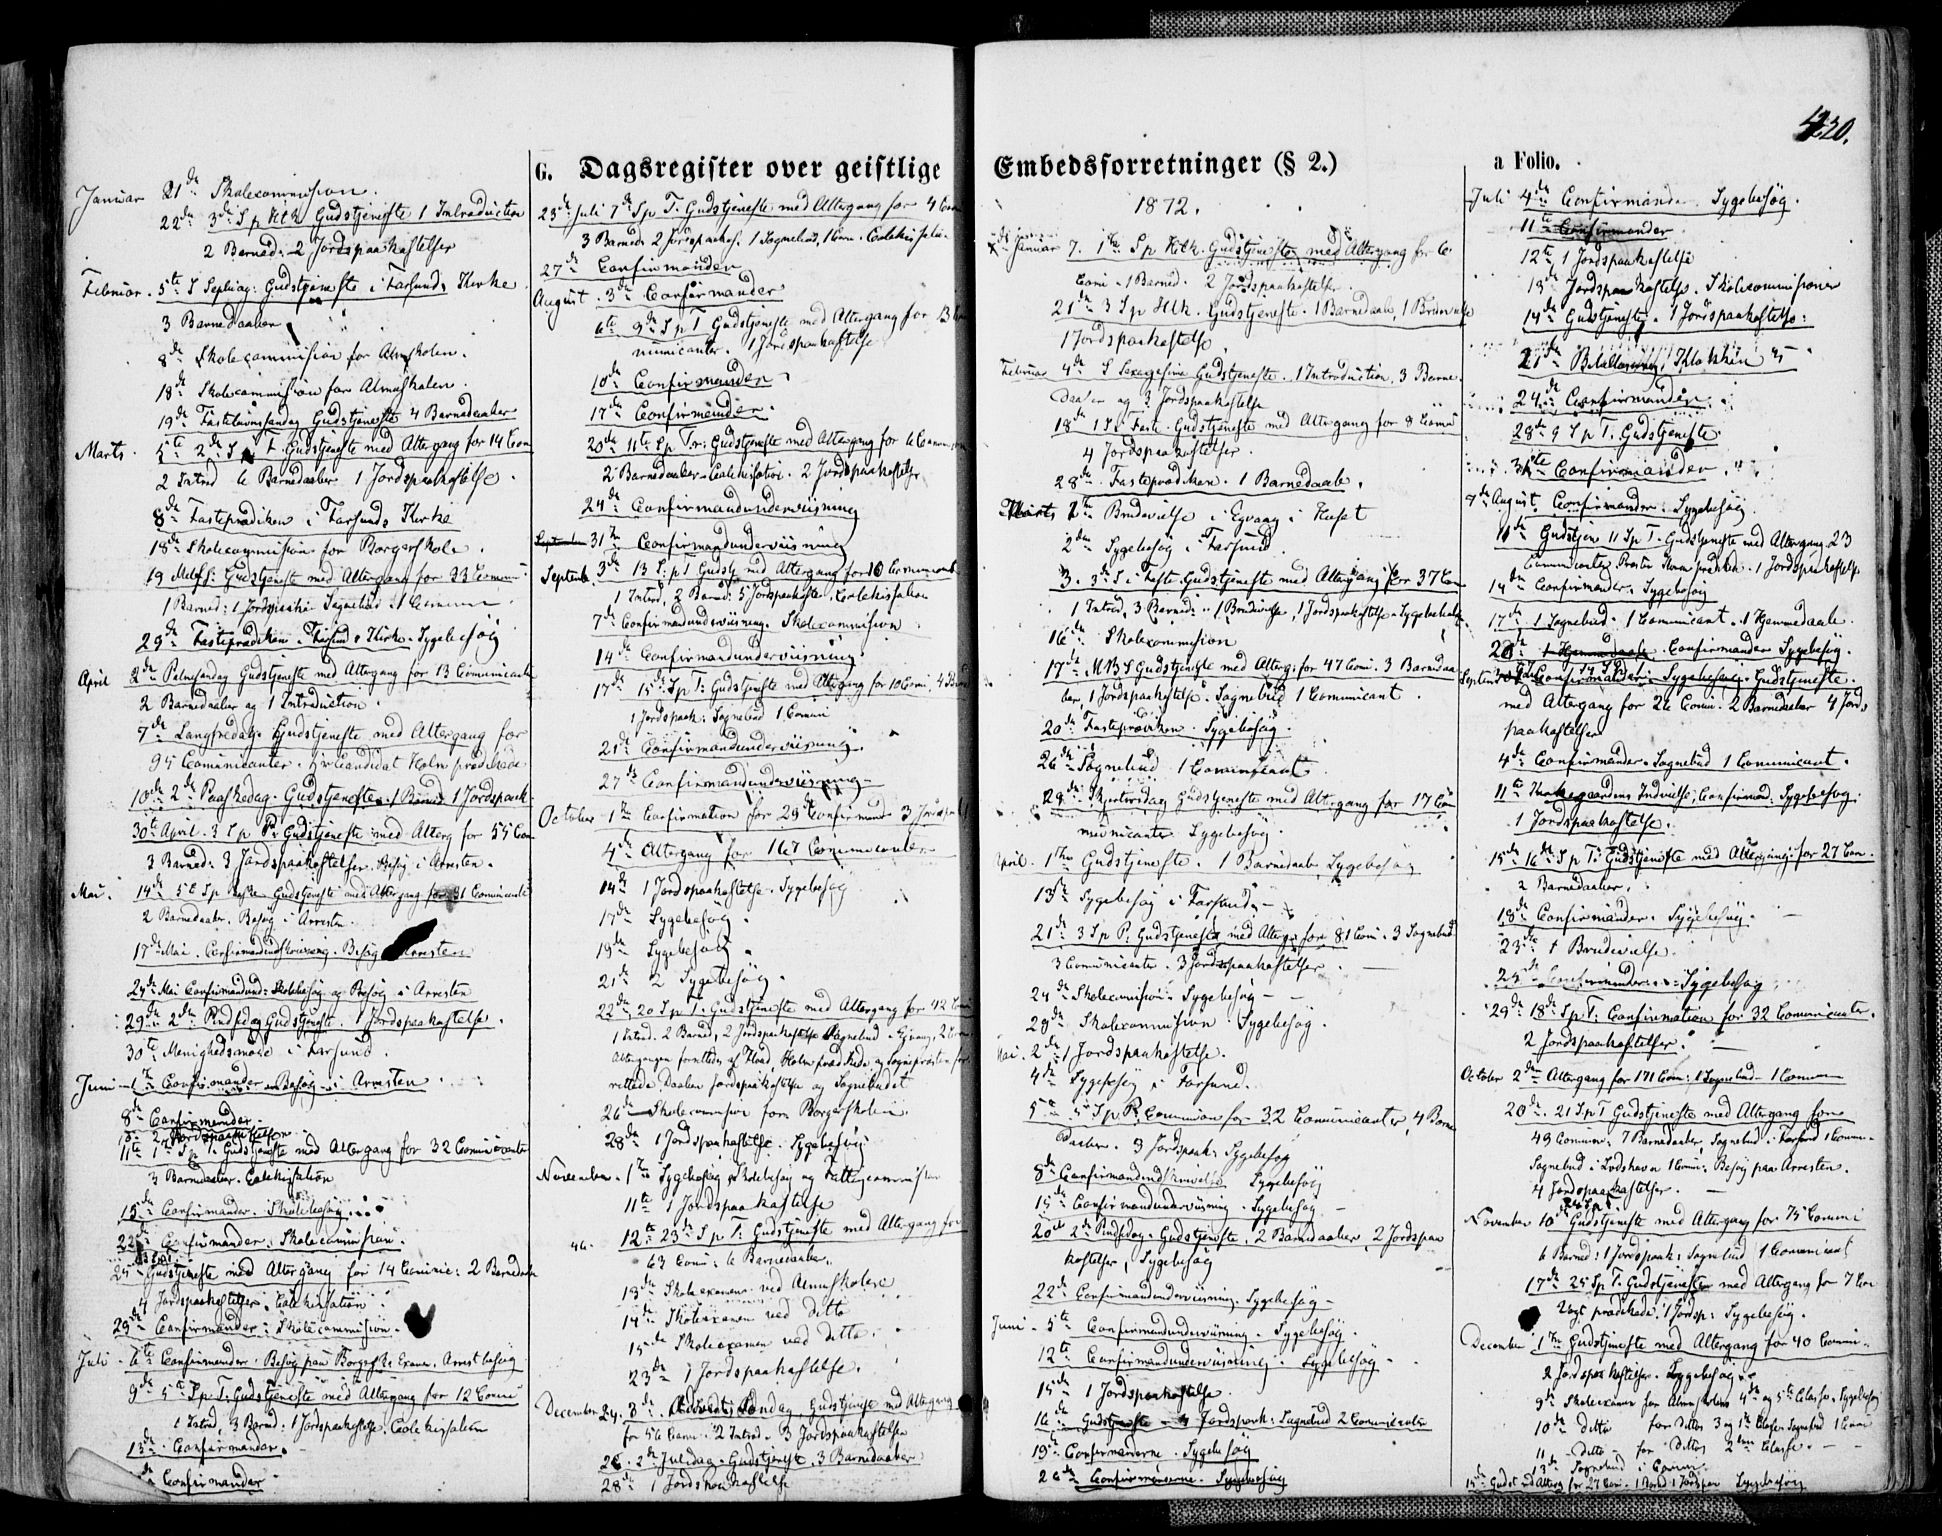 420.
G. Dagsregister over geistlige Embedsforretninger (§ 2.) a Folio.
Januar 21de Skolecommission.
22de 3de S p H t K Gudstjeneste 1 Introduction
2 Barned: 2 Jordspaakastelser
Februar. 5te S Septuag: Gudstjeneste i Farsunds Kirke
3 Barnedaaber
8de Skolecommission for Almuskolen.
18de Skolecommission for Almuskolen.
19de Fastelavnssøndag Gudstjeneste 4 Barnedaaber
Marts. 5te 2de S i F. Gudstjeneste med Altergang for 14 Com
2 Introd 6 Barnedaaber 1 Jordspaakastelse.
8de Fasteprædiken i Farsunds Kirke
18de Skolecommission for Borgerskole.
19 Gudstjeneste med Altergang for 33 Commun
1 Barned: 1 Jordspaak: Sognebud 1 Commun
29de Fasteprædiken i Farsunds Kirke. Sygebesøg
April 2de Palmesøndag Gudstjeneste med Altergang for 13 Communicanter
2 Barnedaaber og 1 Introduction.
7de Langfredag. Gudstjeneste med Altergang for
95 Communicanter. Hr Candidat Holm prædikede
10de 2de Paaskedag. Gudstjeneste. 1 Barned 1 Jordspaak.
30te April. 3 S p P. Gudstjeneste med Alterg for 55 Com
3 Barned: 3 Jordspaakastelser. Besøg i Arresten.
Mai. 14de 5te S p Paaske Gudstjeneste med Altergang for 31 Communicanter
2 Barnedaaber. Besøg i Arresten.
17de Mai. Confirmandindskrivning. Besøg i Arresten
24de Mai Confirmandund: Skolebesøg og Besøg i Arresten
29de 2de Pindsedag Gudstjeneste. 1 Jordspaakastelse.
30te Menighedsmøde i Farsund.
Juni 1te Confirmander Besøg i Arresten
8de Confirmander
2 Jordspaakastelser
11te 1te S p T. Gudstjeneste med Altergang for 32 Communicanter
3 Barnedaaber. Catekisation
15de Confirmander. Skolebesøg
22de Confirmander. Skolecommission.
25 Gudstjeneste med Altergang for 14 Commun: 2 Barnedaab
4 Jordspaakastelser. Catekisation
29de Confirmander. Skolecommission.
Juli. 6te Confirmander. Besøg paa Borgersk. Examen, Arrestbesøg
9de 5te S p T. Gudstjeneste med Altergang for 12 Comu
1 Introd, 3 Barned. 1 Jordspaakastelse. Catekisation
13de Confirmander.
Confirmander
23de Juli 7de S p T. Gudstjeneste med Altergang for 4 Com
3 Barned. 2 Jordspaakas. 1 Sognebud, 1 Com. Catekisation.
27de Confirmander
August. 3de Confirmander
6te 9de S p T Gudstjeneste med Altergang for 13 Com
municanter. 1 Jordspaakastelse
10de Confirmander
17de Confirmander.
20de 11te S p Tr: Gudstjeneste med Altergang for 6 Communicanter
2 Barnedaaber. Catekisation. 2 Jordspaakastelser
24de Confirmandunderviisning
September 31te Confirmandunderviisning
Septemb. 3de 13 S p T Gudstj med Altergang for 10 Communicant
1 Introd, 2 Barned: 5 Jordspaakaste. Catekisation
7de Confirmandunderviisning. Skolecommission
14de Confirmandunderviisning.
17de 15de S p T: Gudstjeneste med Altergang for 10 Com. 4 Barned
1 Jordspaak: Sognebud 1 Comun
21de Confirmandunderviisning.
27de Confirmandunderviisning
October 1te Confirmation for 29 Confirmand 3 Jordspaak
4de Altergang for 167 Communicanter
14de 1 Jordspaakastelse. Sygebesøg
17de Sygebesøg.
19de Sygebesøg
21de 2 Sygebesøg.
22de 20 S p T. Gudstjeneste med Altergang for 42 Com
1 Introd. 2 Barned, 2 Jordspaakastelse Sognebud 2 Com
Altergangen forrettes af Holm prædikede og Sognepræsten for
rettede Daaben Jordspaakastelse og Sognebudet
26de Skolecommission for Borgerskolen.
28de 1 Jordspaakastelse. Sygebesøg
November. 1te Sygebesøg, Skolebesøg og Fattigcommission
11te 1 Jordspaakastelse
12te 23de S p T: Gudstjeneste med Altergang for
63 Com: 6 Barnedaaber.
13de Skoleexamen ved Almuskolen
14de Skoleexamen ved ditto
15de Skoleexamen ved ditto.
23de 1 Jordspaakastelse.
December 3de Adventssøndag. Gudstjeneste med Altergang
for 56 Com. 2 Introd. 3 Jordspaakastelser
26. 2de Juledag. Gudstjeneste, 3 Barnedaaber
28de 1 Jordspaakastelse
1872.
Januar 7. 1te S p H t K. Gudstjeneste med Altergang for 6
Com. 1 Barned. 2 Jordspaakastelser.
21de 3 S p H t K. Gudstjeneste. 1 Barnedaab, 1 Brudevielse
1 Jordspaakastelse.
Februar 4de S Sexagesima Gudstjeneste. 1 Introduction, 3 Barne
daaber og 3 Jordspaakastelse
18de 1 S i Faste. Gudstjeneste med Altergang for 8 Comu
4 Jordspaakastelser.
28de Fasteprædiken. 1 Barnedaab.
Marts 1te Brudevielse i Egvaag i Huset
2den Sygebesøg i Farsund
3. 3de S i Faste. Gudstjeneste med Altergang for 37 Com
1 Introd, 3 Barned: 1 Brudevielse, 1 Jordspaakastelse. Sygebesøg
16de Skolecommission
17de M B S Gudstjeneste med Alterg: for 47 Com. 3 Barnedaa
ber, 1 Jordspaakastelse. Sognebud 1 Communicant.
20de Fasteprædiken. Sygebesøg.
26de Sognebud 1 Communicant
28de Skjertorsdag Gudstjeneste med Altergang for 17 Com
municanter Sygebesøg.
April. 1te Gudstjeneste. 1 Barnedaab, Sygebesøg
13de Sygebesøg i Farsund.
21de 3 S p P. Gudstjeneste med Alterg: for 81 Com. 3 Sognebud
3 Communicanter. 3 Jordspaakastelser.
24de Skolecommission. Sygebesøg
29de Skolecommission. Sygebesøg.
Mai. 2de 1 Jordspaakastelse.
4de Sygebesøg i Farsund.
5te 5te S p P. Communion for 32 Communicanter, 4 Barne
daaber. 3 Jordspaak: Sygebesøg
8de Confirmandindskrivelse. Sygebesøg
15de Confirmandunderviisning. Sygebesøg
20de 2de Pindsedag. Gudstjeneste. 2 Barnedaaber, 2 Jordspaa
kastelser, Sygebesøg
22de Confirmandunderviisning. Sygebesøg
Juni. 5te Confirmandunderviisning. Sygebesøg.
12te Confirmandunderviisning. Sygebesøg
15de 1 Jordspaakastelse.
16de Gudstjeneste 4 Jordspaak: Sognebud 2 Communicanter
19de Confirmanderne. Sygebesøg
26de Confirmanderne. Sygebesøg
Juli 4de Confirmander. Sygebesøg.
11te Confirmander
12te 1 Jordspaakastelse
13de Jordspaakastelse. Skolecommissioner
14de Gudstjeneste. 1 Jordspaakastelse.
21de
24de Confirmander.
28de 9 S p T. Gudstjeneste
31te Confirmander.
7de August. Confirmander. Sygebesøg.
11te Gudstjen 11 S p T. Gudstjeneste med Altergang 23
Communicanter 1 Jordspaakastelse
14de Confirmander. Sygebesøg
17de 1 Sognebud. 1 Communicant. 1 Hjemmedaab.
28de Confirmander Sygebesøg.
Septemb. Gudstjeneste.
med Altergang for 26 Comun. 2 Barnedaaber 4 Jord
paakastelser
4de Confirmander. Sognebud 1 Communicant.
11te Kirkegaardens Indvielse; Confirmand: Sygebesøg.
1 Jordspaakastelse.
15de 16de S p T. Gudstjeneste med Altergang for 27 Com.
2 Barnedaaber.
18de Confirmander. Sygebesøg.
23de 1 Brudevielse.
25de Confirmander. Sygebesøg
29de 18de S p T: Confirmation for 32 Communicanter.
2 Jordspaakastelser.
October 2de Altergang for 171 Com: 1 Sognebud 1 Commun
20de. 21 S p T Gudstjeneste med Altergang for
49 Commun: 7 Barnedaaber, Sognebud i Farsund 1 Commun.
Sognebud i Lodshavn 1 Comun: Besøg paa Arresten.
4 Jordspaakastelser.
November 10de Gudstjeneste med Altergang for 75 Commun
6 Barned: 1 Jordspaak: Sognebud 1 Communicant
17de 25 S p T. Gudstjeneste med Altergang for 7 Com
Vogt prædikede. 1 Jordsp: Sygebesøg.
December 1te Gudstjeneste med Altergang for 40 Commun.
2 Jordspaakastelser. Sygebesøg.
9de Skoleexamen for Almuskolens 4de og 5te Classe. Sygebesøg
10de Ditto for Dittos 3 og Classe. Sognebud 1 Com
11 Ditto for Dittos 2den Classe.
13de Sognebud i
15de Gudst med Alterg for 27 Com. 1 Barned 1 Jordspaa Sygebesøg